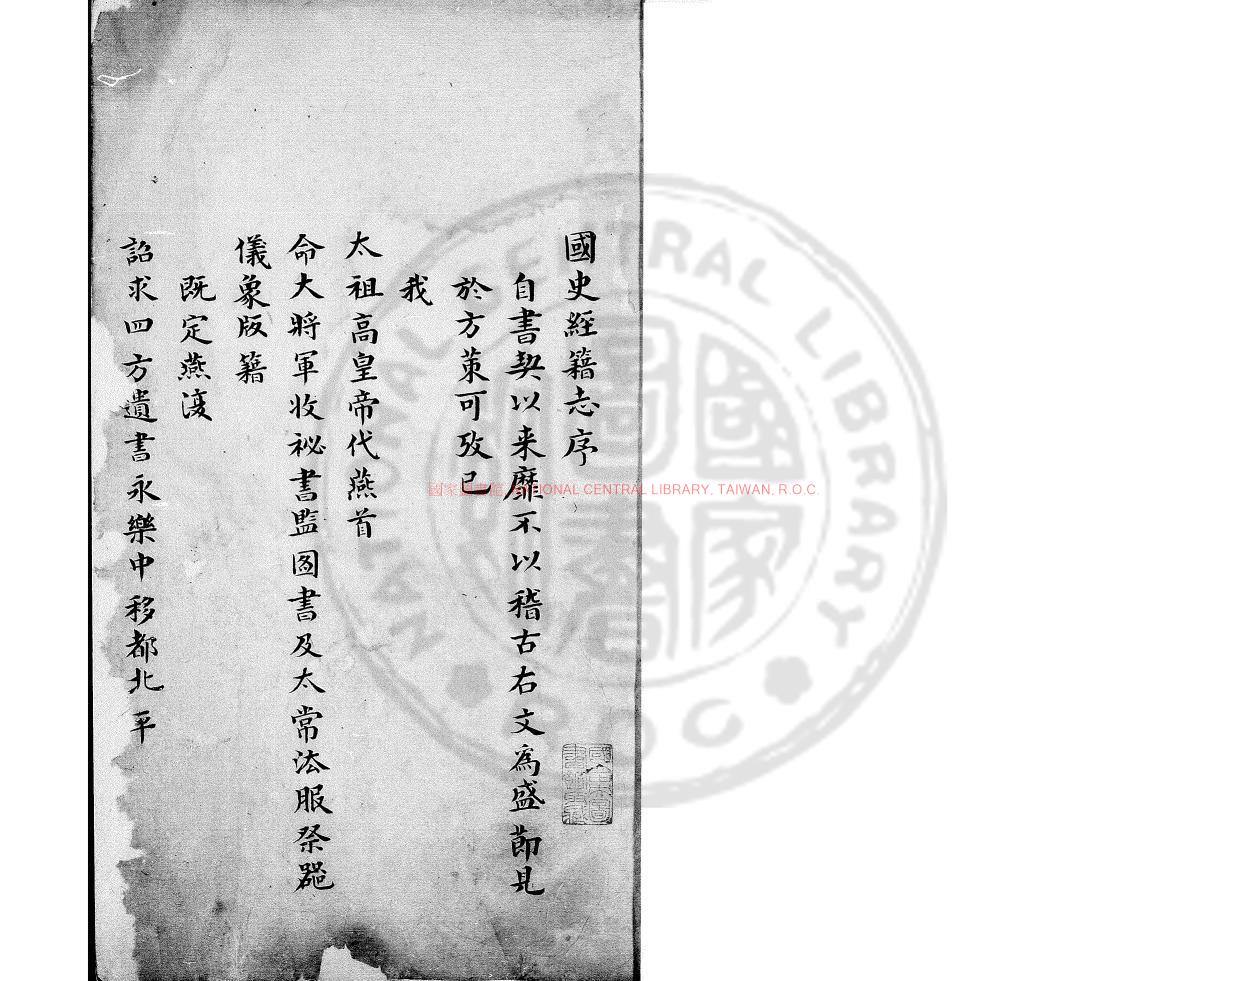 國史經籍志序
自書契以来靡不以稽古右文為盛莭見
於方䇿可攷已
我
太祖高皇帝代燕首
命大將軍收祕書監圖書及太常法服祭器
儀象版籍
既定燕復
詔求四方遺書永樂中移都北平
國家圖書館 NATIONAL CENTRAL LIBRARY, TAIWAN, R.O.C.
NATIONAL CENTRAL LIBRARY
R.O.C.